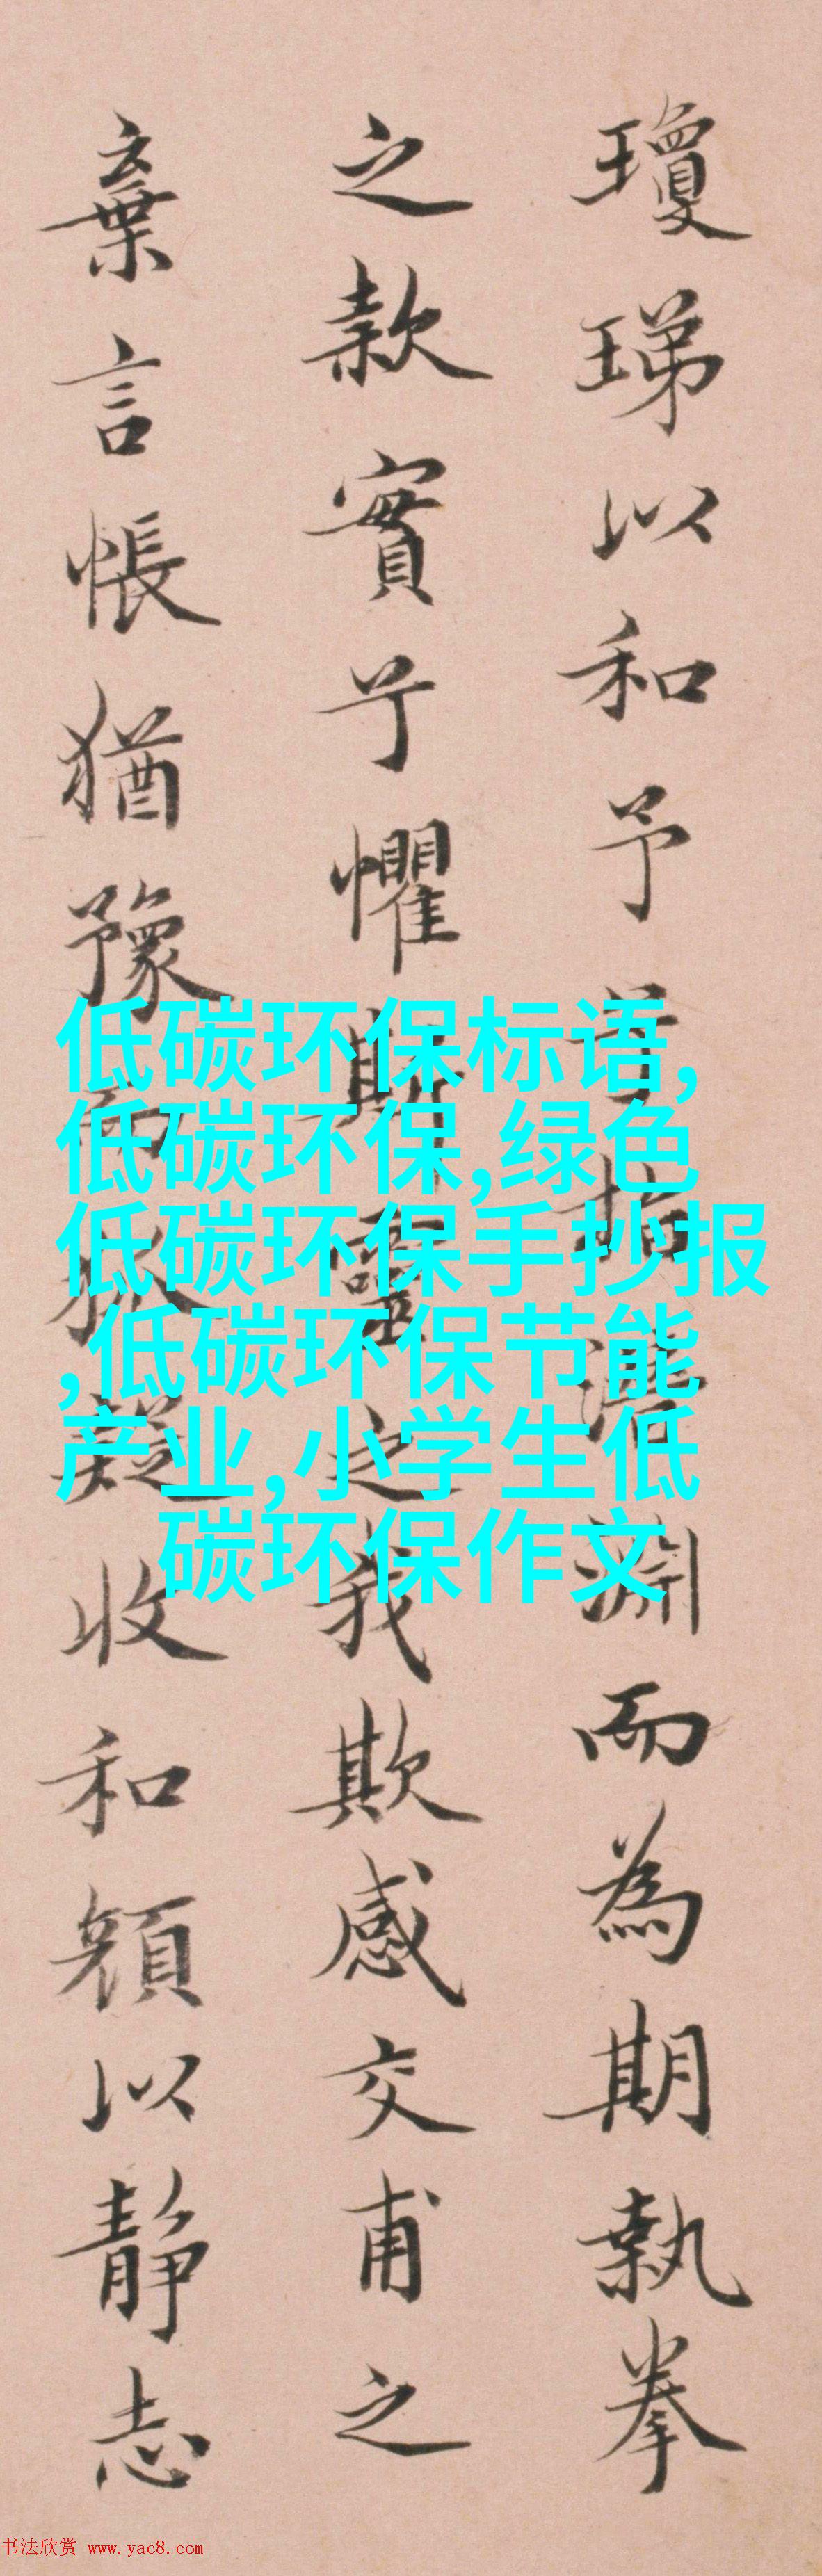 瓊珶以和予兮指潛淵而為期執拳
之款實兮懼斯靈之我欺感交甫之
棄言悵猶豫而狐疑收和顔以靜志
低碳环保标语,
低碳环保,绿色
低碳环保手抄报
,低碳环保节能
产业,小学生低
碳环保作文
书法欣赏 www.yac8.com